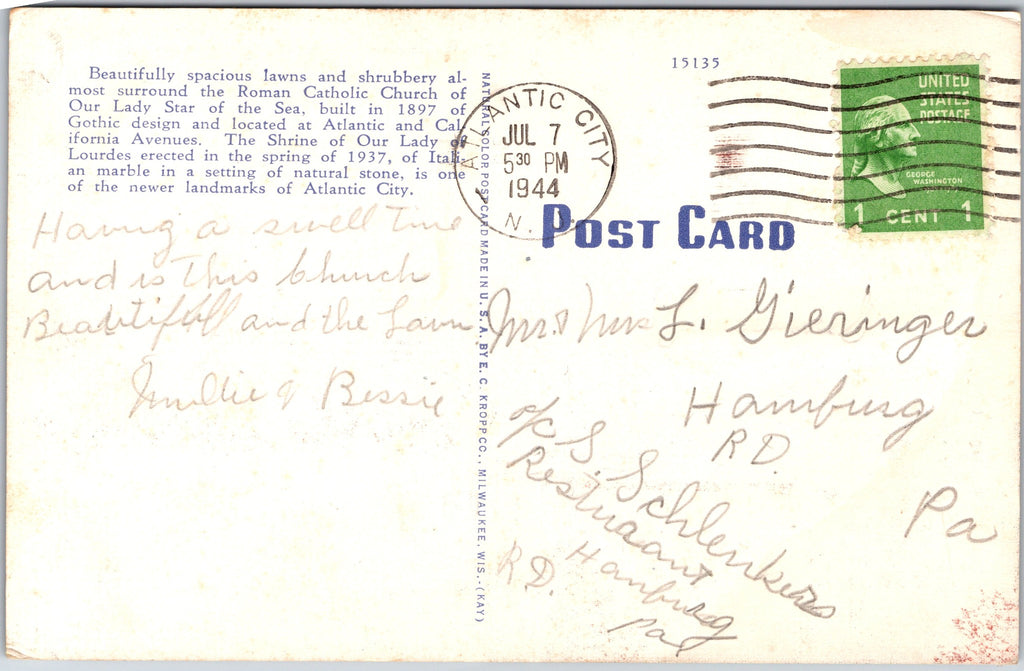 Beautifully spacious lawns and shrubbery al-
most surround the Roman Catholic Church of
Our Lady Star of the Sea, built in 1897 of
Gothic design and located at Atlantic and Cal-
ifornia Avenues. The Shrine of Our Lady of
Lourdes erected in the spring of 1937, of Itali-
an marble in a setting of natural stone, is one
of the newer landmarks of Atlantic City.
Having a swell time
and is this Church
Beautifull and the Lawn
& Bessie
NATURAL COLOR POST CARD MADE IN U. S. A. BY E. C. KROPP CO., MILWAUKEE, WIS.-(KAY)
15135
ATLANTIC CITY
JUL 7
5 30 PM
1944
N.
UNITED
STATES
POSTAGE
GEORGE
WASHINGTON
1 CENT 1
POST CARD
Mr. & Mrs L. Gieringer
Hamburg
RD.
Pa
c/o S. Schlenkers
Resturaant
Hamburg
RD.
Pa